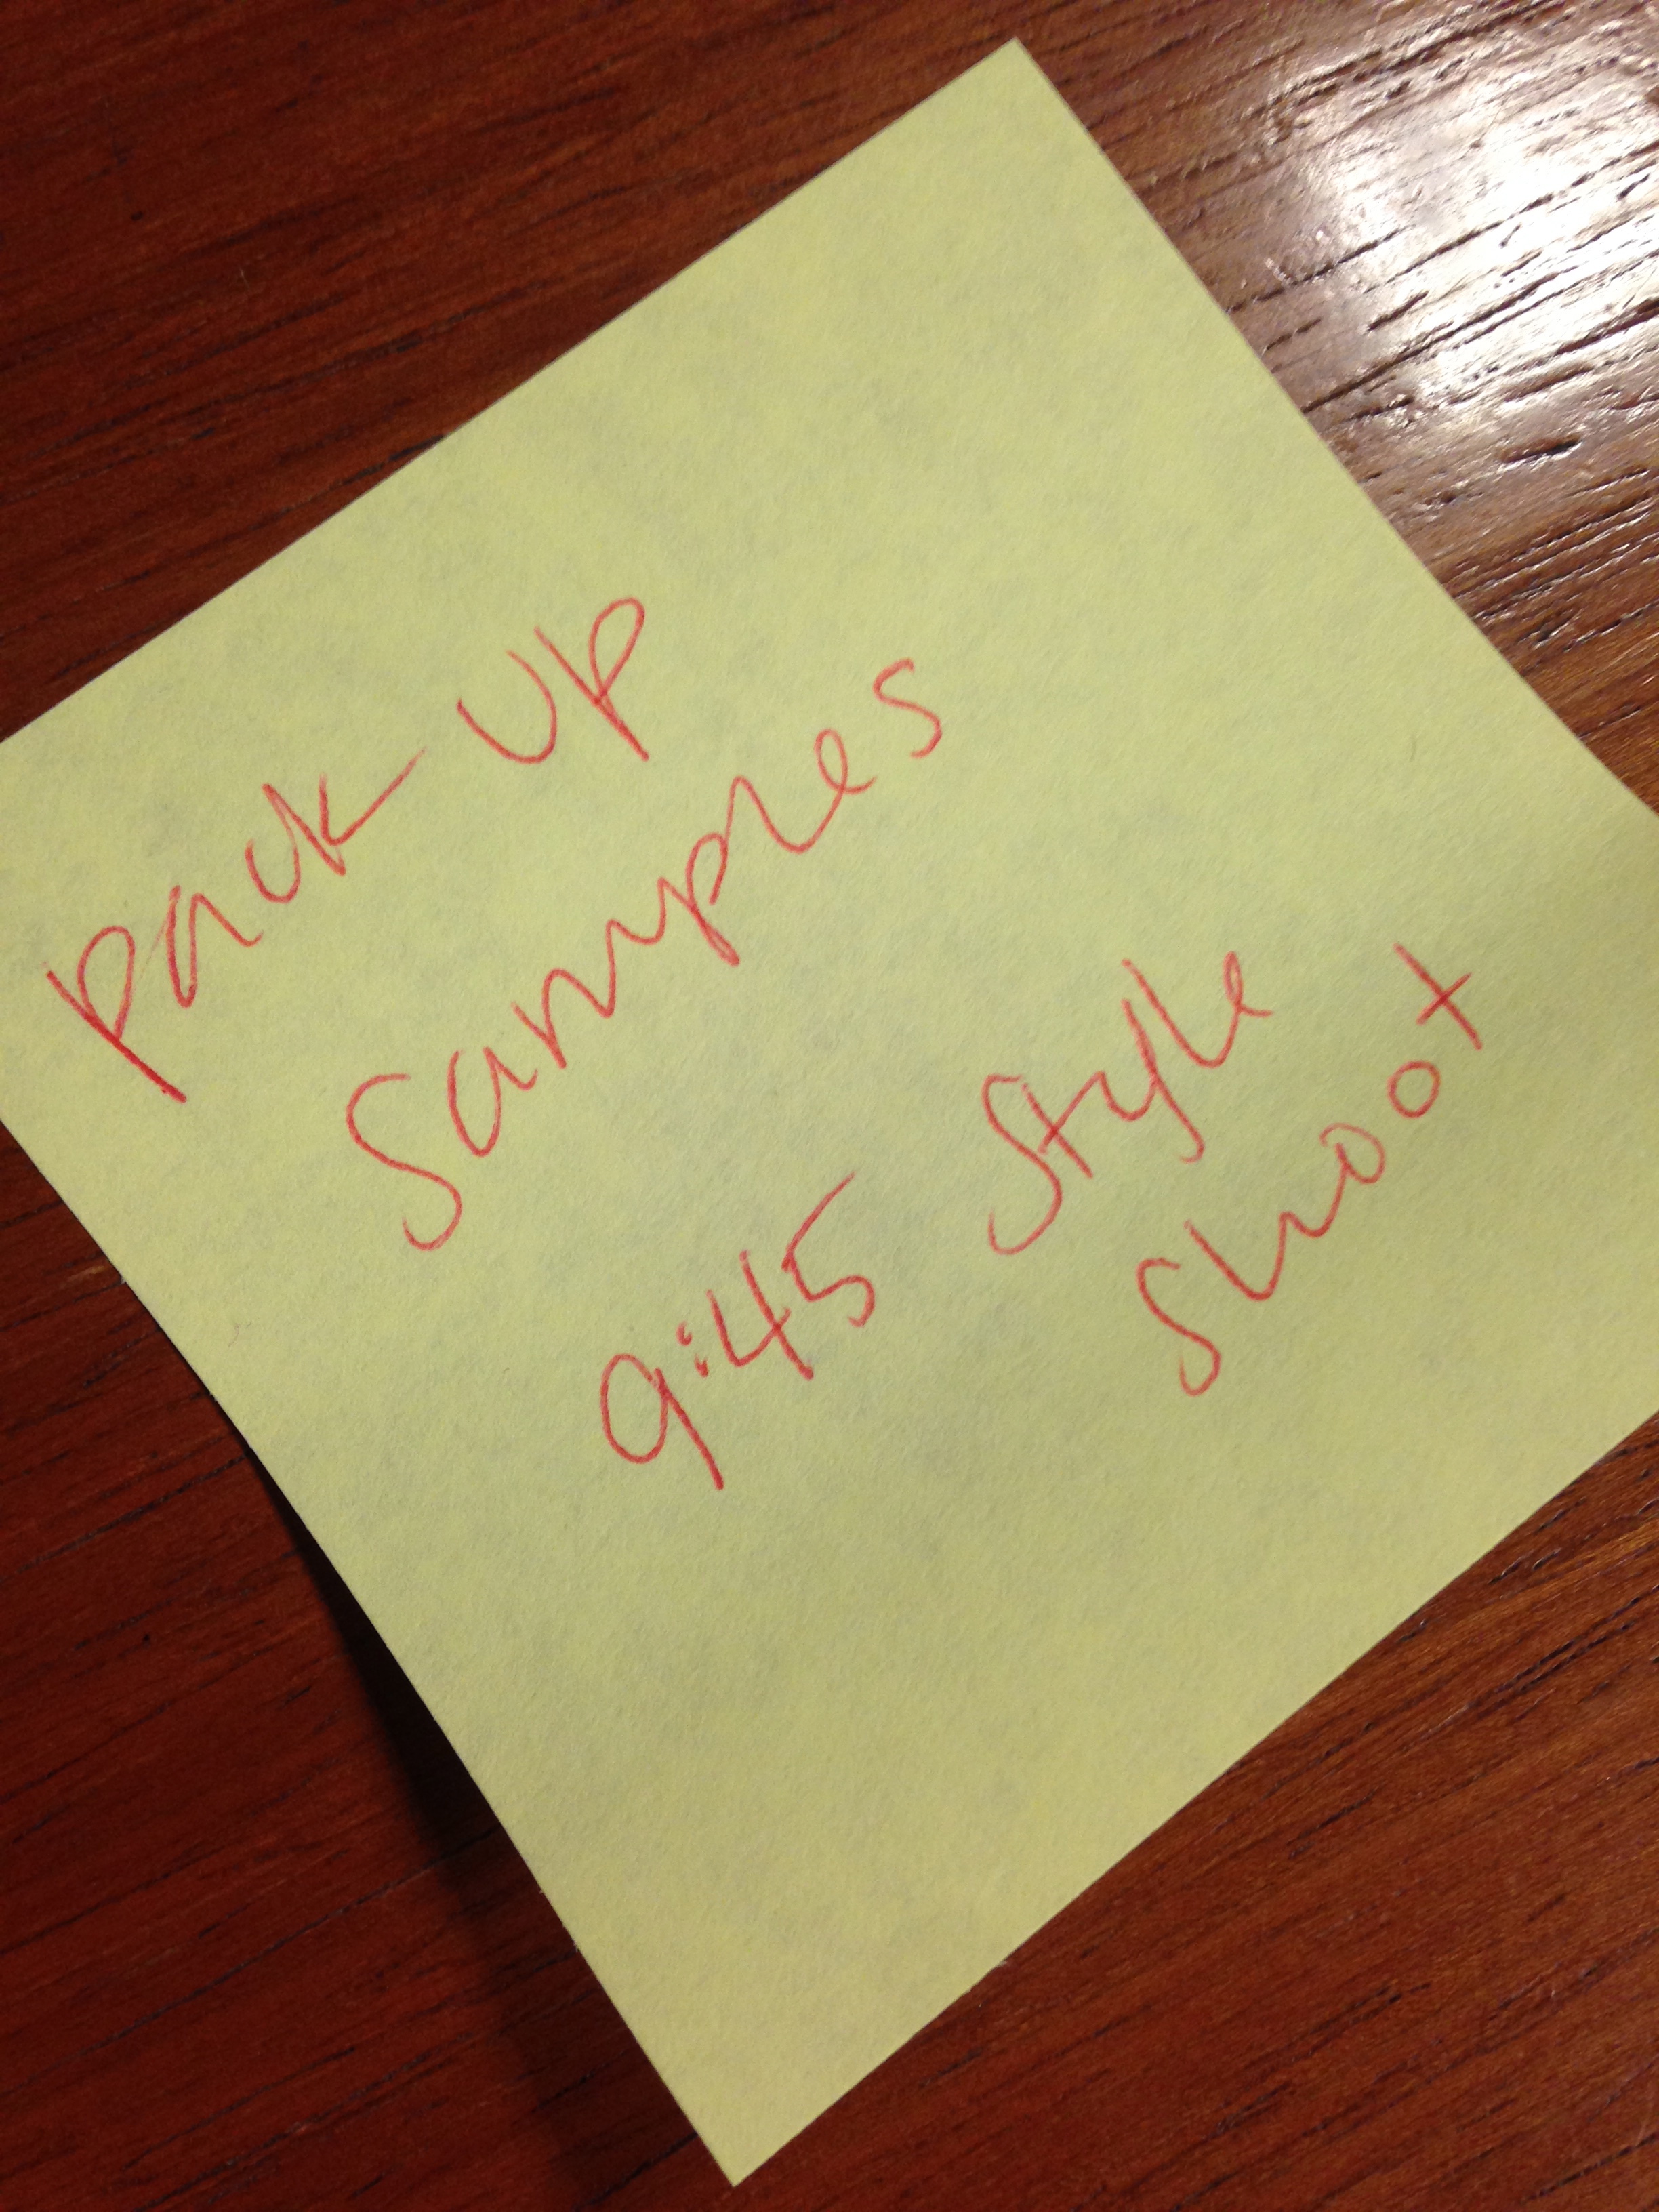 pack up
samples
9:45 Style
shoot